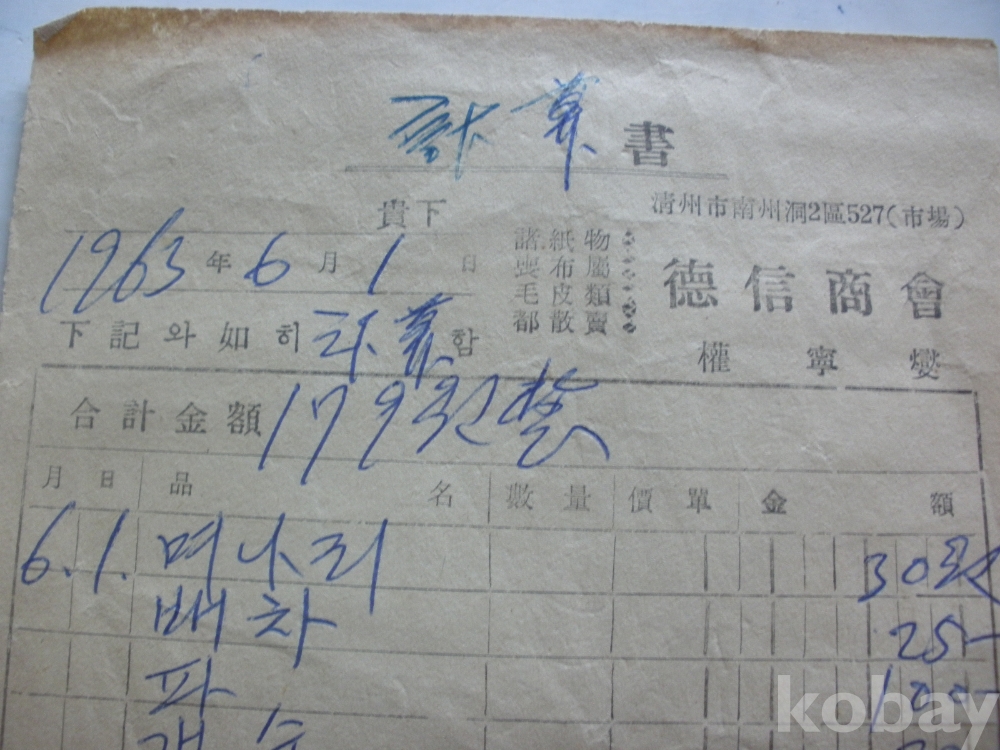 計算書
貴下
淸州市南州洞2區527(市場)
1963年 6月 1日
諸紙物
喪布屬
毛皮類
都散賣
德信商會
權寧燮
下記와如히計算함
合計金額 179원整
月 日 品名 數量 價單 金額
6.1. 며나리 30원
배차 25-
파
kobay